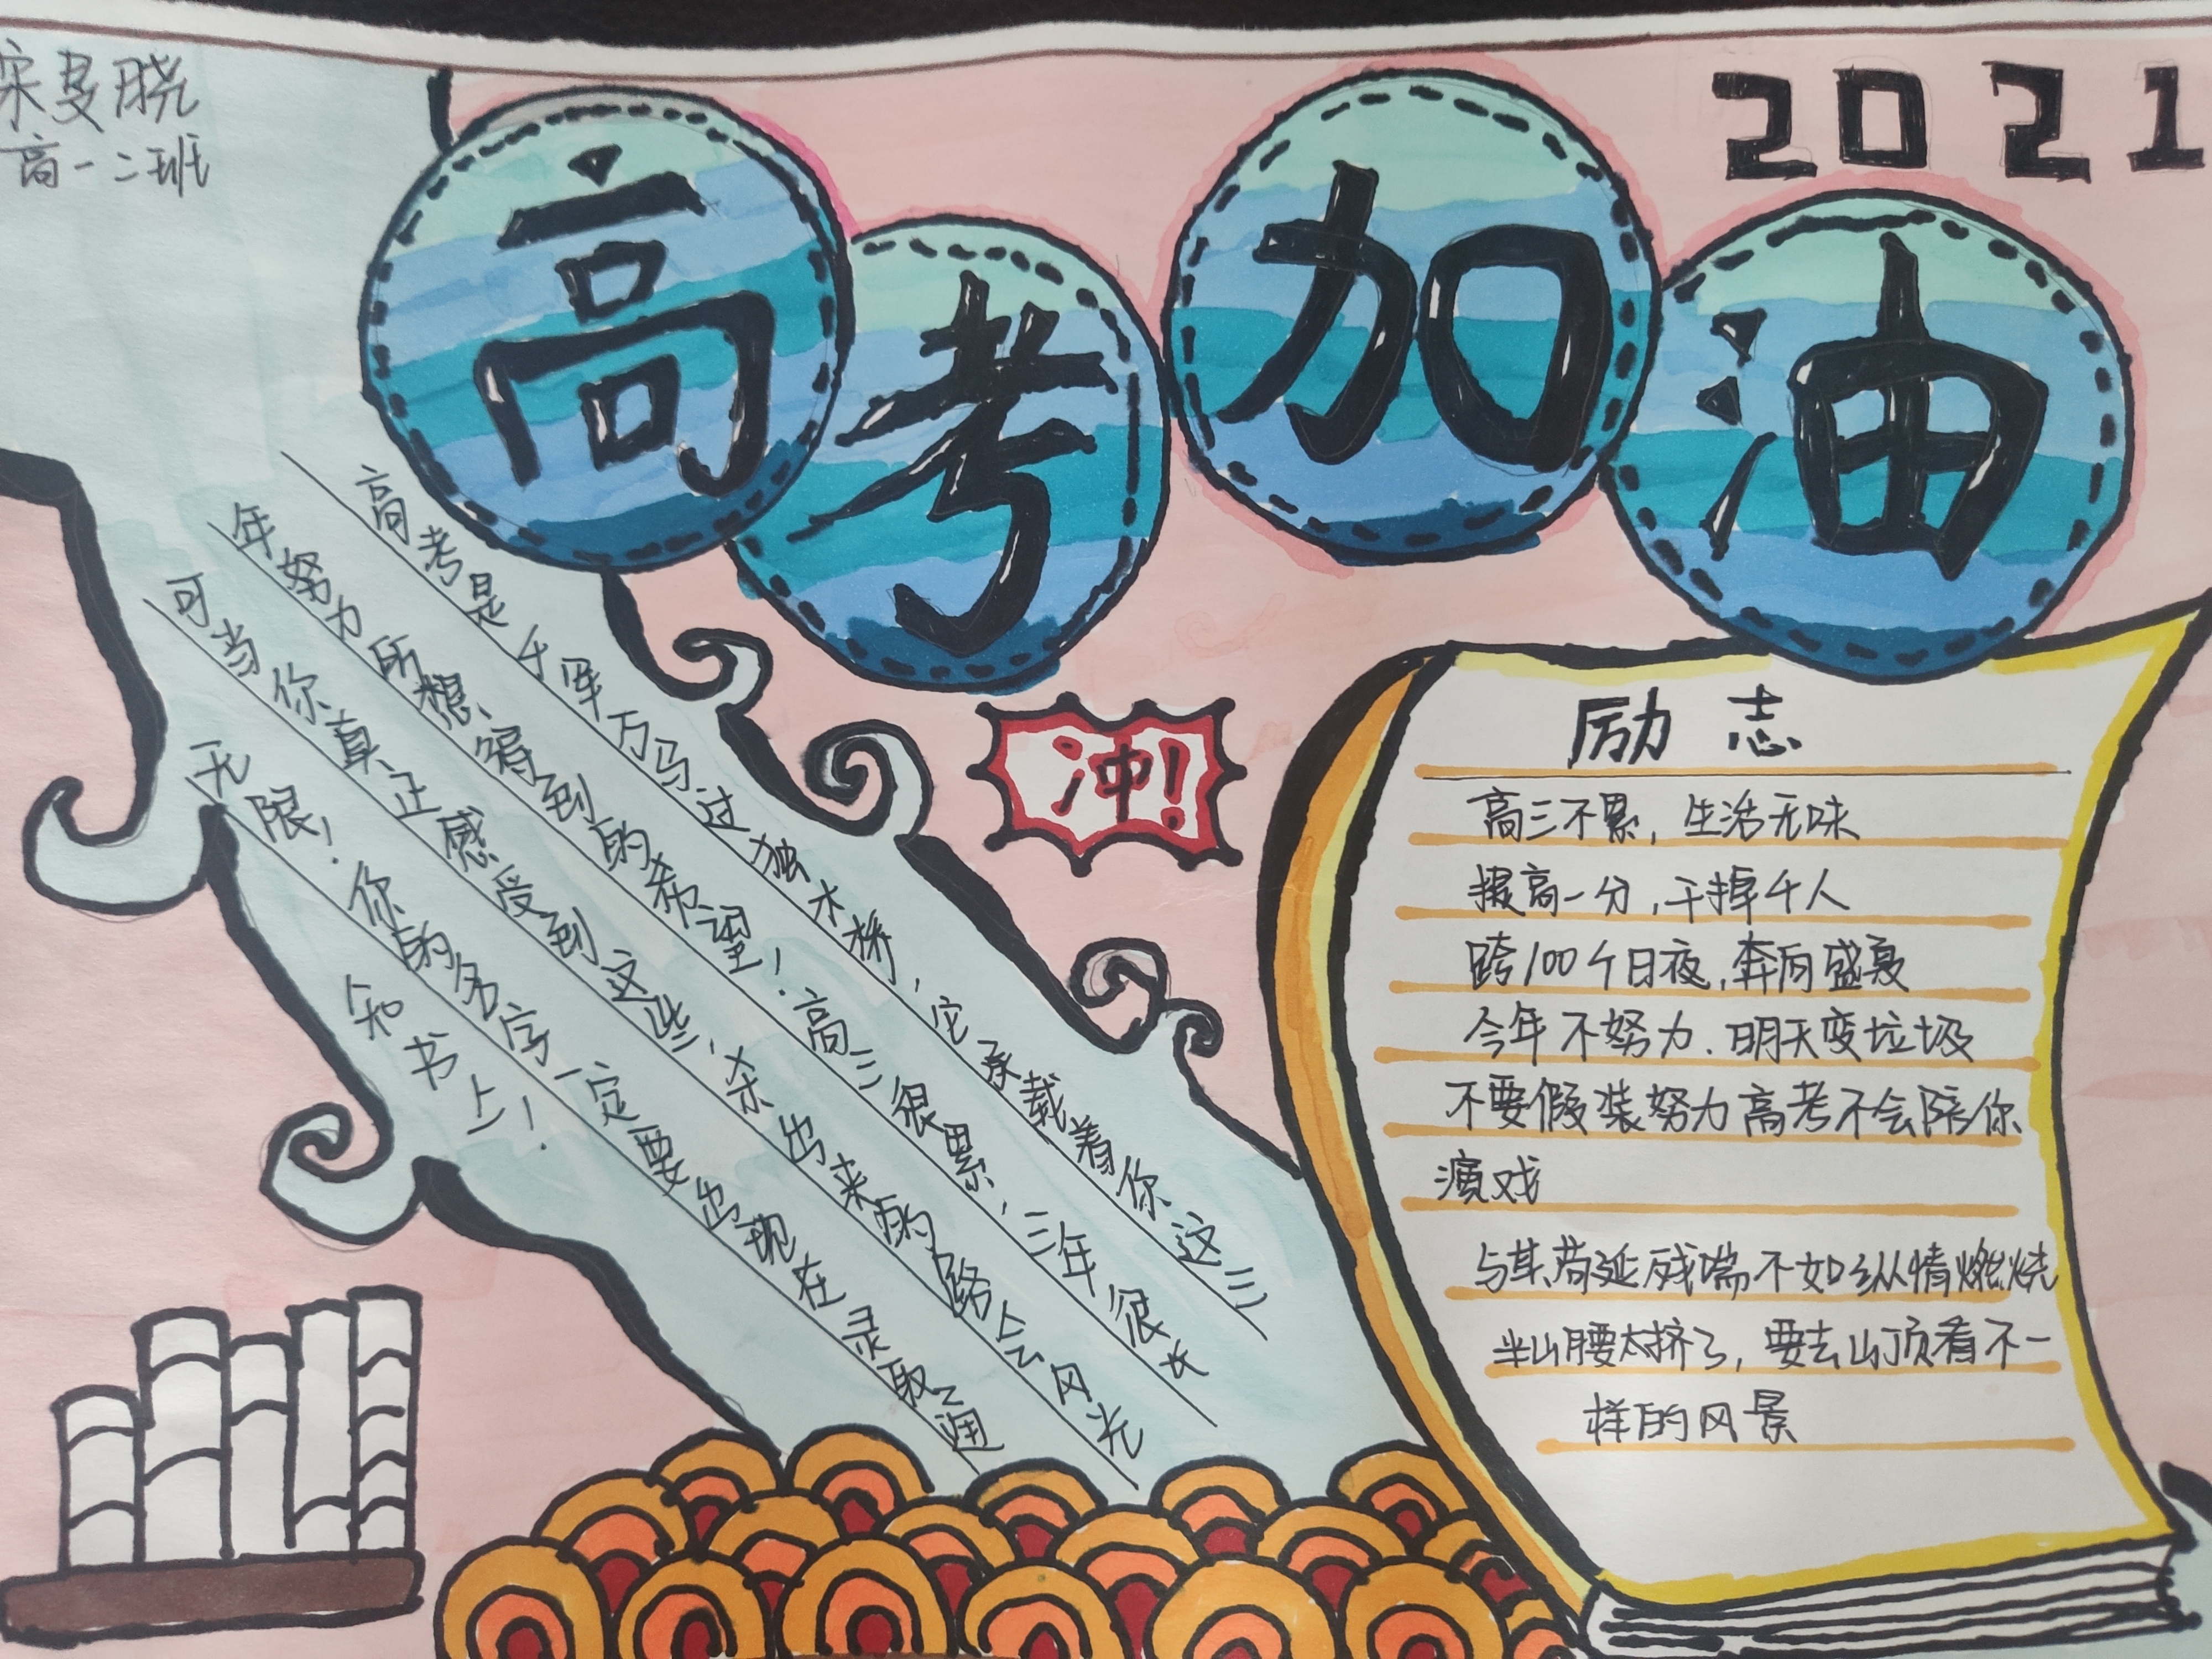 宋夏晓
高一二班
2021
高考加油
高考是千军万马过独木桥，它承载着你这三
年努力所想得到的希望！高三很累，三年很长
可当你真正感受到这些，杀出来的路会风光
无限！你的名字一定要出现在录取通
知书上！
冲！
励志
高三不累，生活无味
提高一分，干掉千人
跨100个日夜，奔向盛夏
今年不努力．明天变垃圾
不要假装努力高考不会陪你
演戏
与其苟延残喘不如纵情燃烧
半山腰太挤了，要去山顶看不一
样的风景